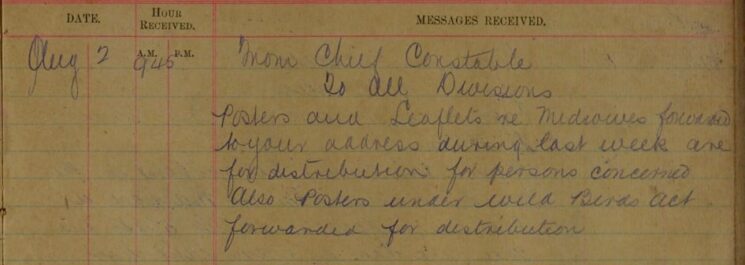 DATE. HOUR RECEIVED. MESSAGES RECEIVED.
A.M. P.M.
Aug 2 945 From Chief Constable
To All Divisions
Posters and Leaflets re Midwives forwarded
to your address during last week are
for distribution for persons concerned
Also Posters under Wild Birds Act
forwarded for distribution